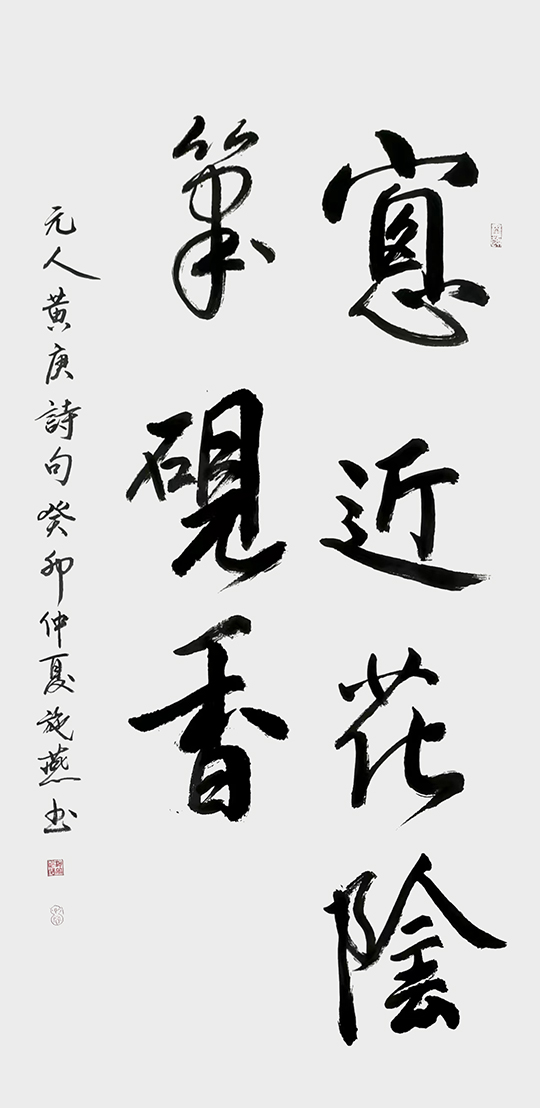 窻近花陰
筆硯香
元人黄庚詩句癸卯仲夏施燕书